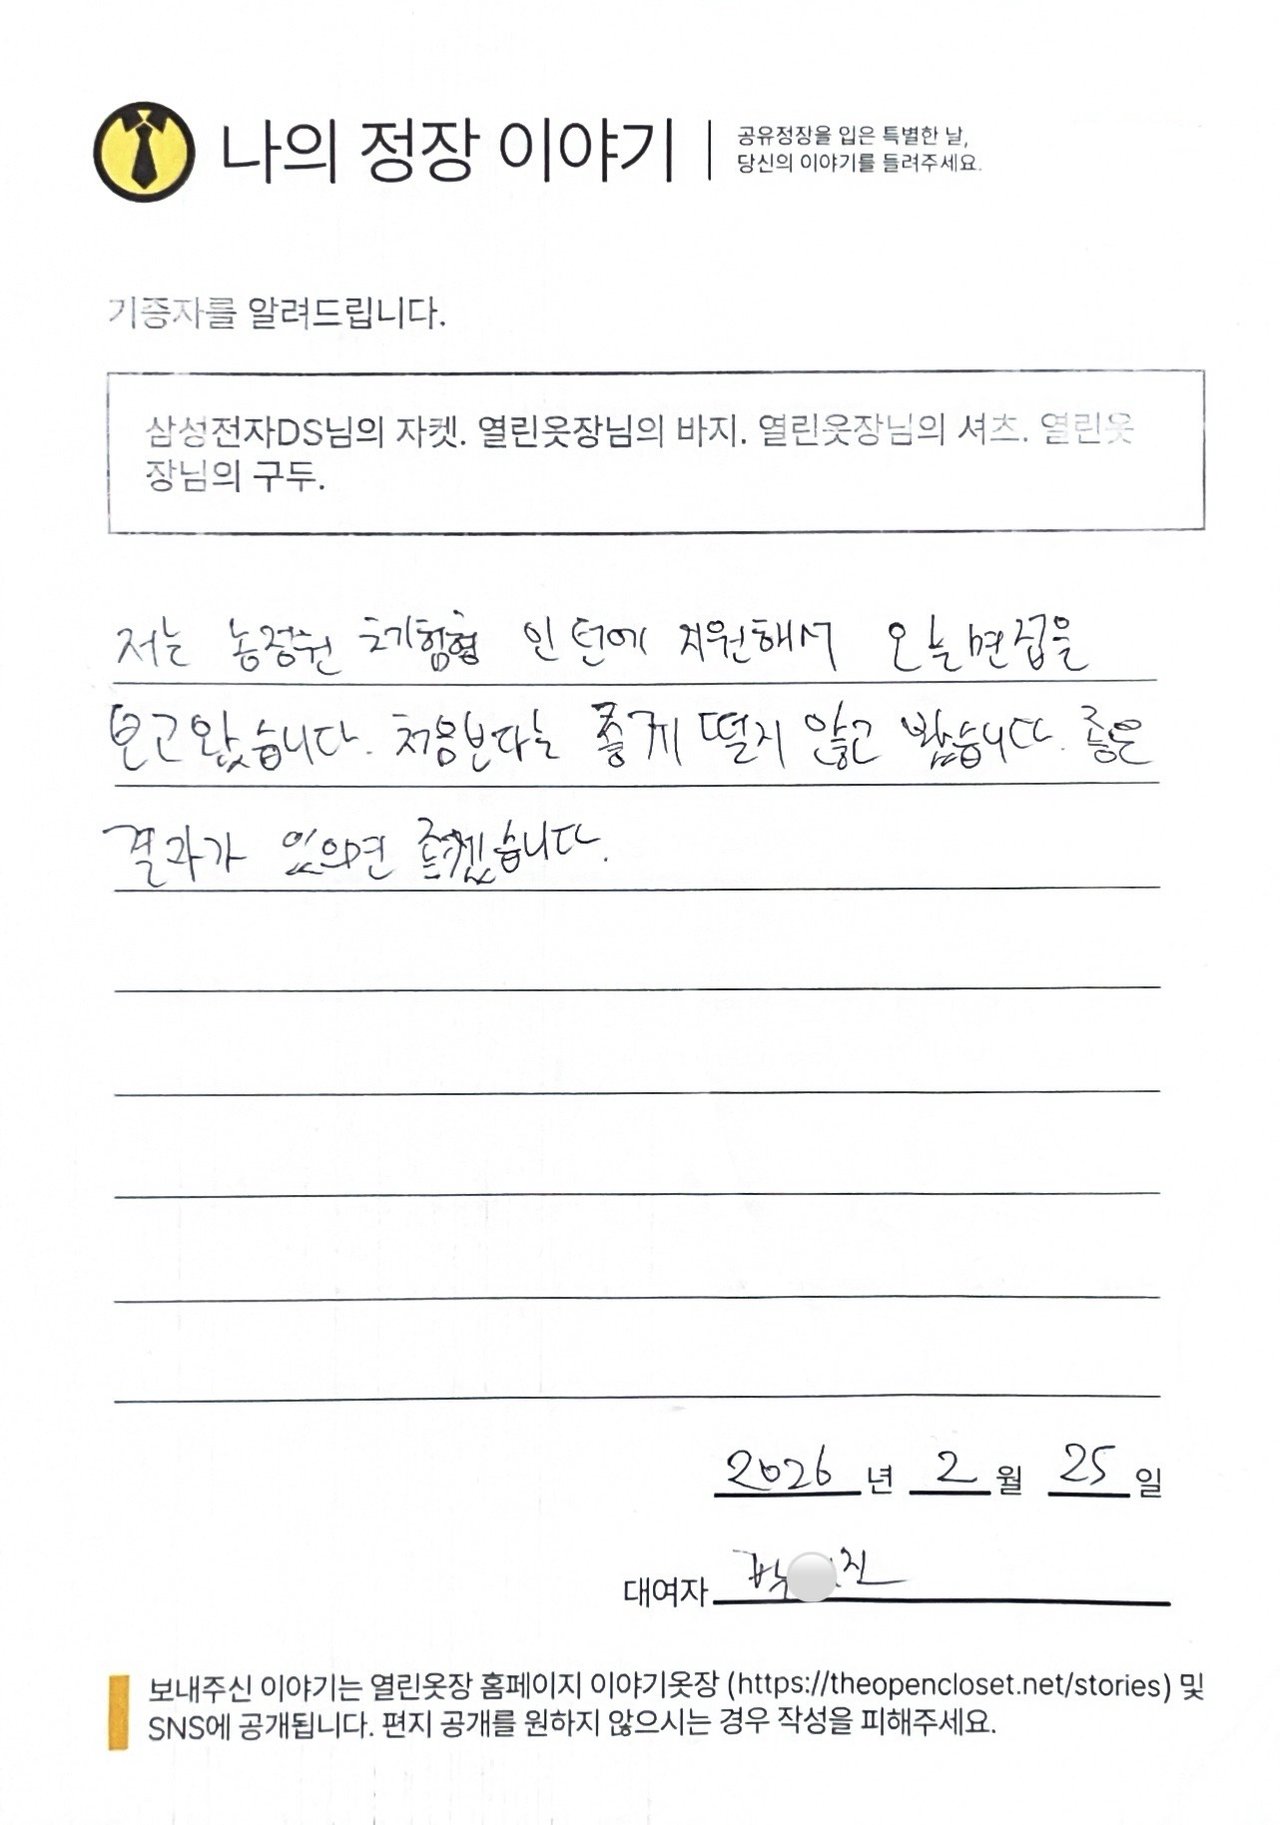 나의 정장 이야기
공유정장을 입은 특별한 날,
당신의 이야기를 들려주세요.
기증자를 알려드립니다.
삼성전자DS님의 자켓. 열린옷장님의 바지. 열린옷장님의 셔츠. 열린옷
장님의 구두.
저는 농정원 체험형 인턴에 지원해서 오늘 면접을
보고 왔습니다. 처음보다는 좋게 떨지 않고 봤습니다. 좋은
결과가 있으면 좋겠습니다.
2026 년 2 월 25 일
대여자 박 진
보내주신 이야기는 열린옷장 홈페이지 이야기옷장 (https://theopencloset.net/stories) 및
SNS에 공개됩니다. 편지 공개를 원하지 않으시는 경우 작성을 피해주세요.